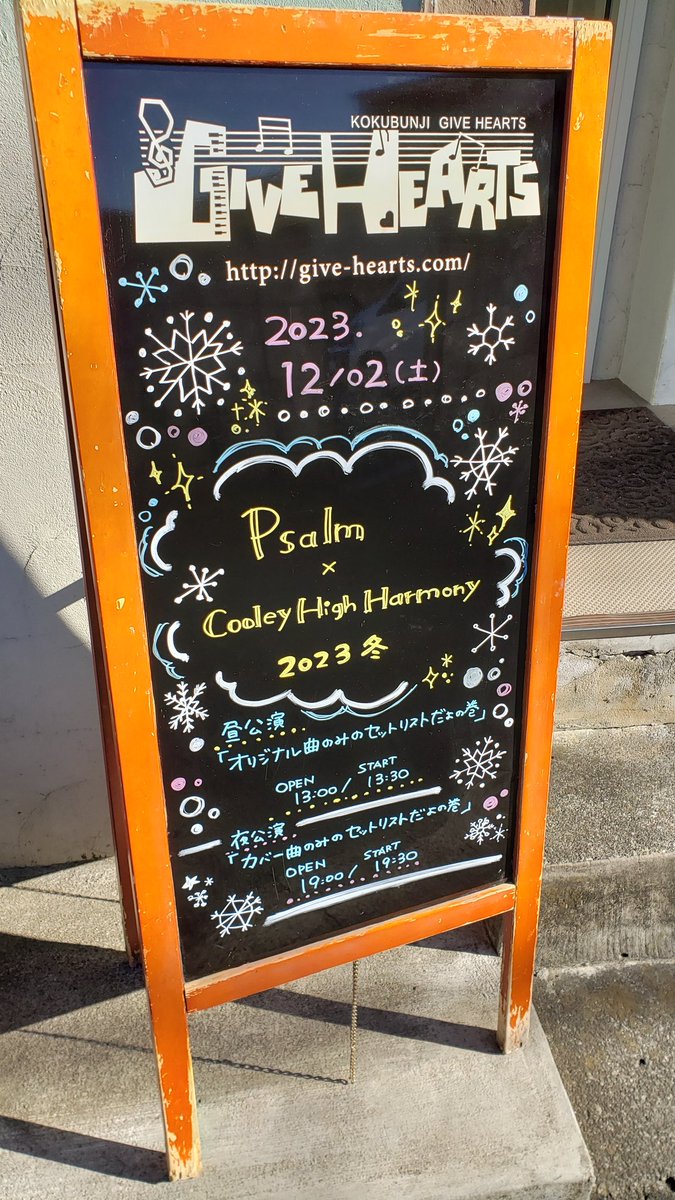 KOKUBUNJI GIVE HEARTS
GIVE HEARTS
http://give-hearts.com/
2023.
12/02(土)
Psalm
×
Cooley High Harmony
2023 冬
昼公演
「オリジナル曲のみのセットリストだよの巻」
OPEN START
13:00 / 13:30
夜公演
「カバー曲のみのセットリストだよの巻」
OPEN START
19:00 / 19:30